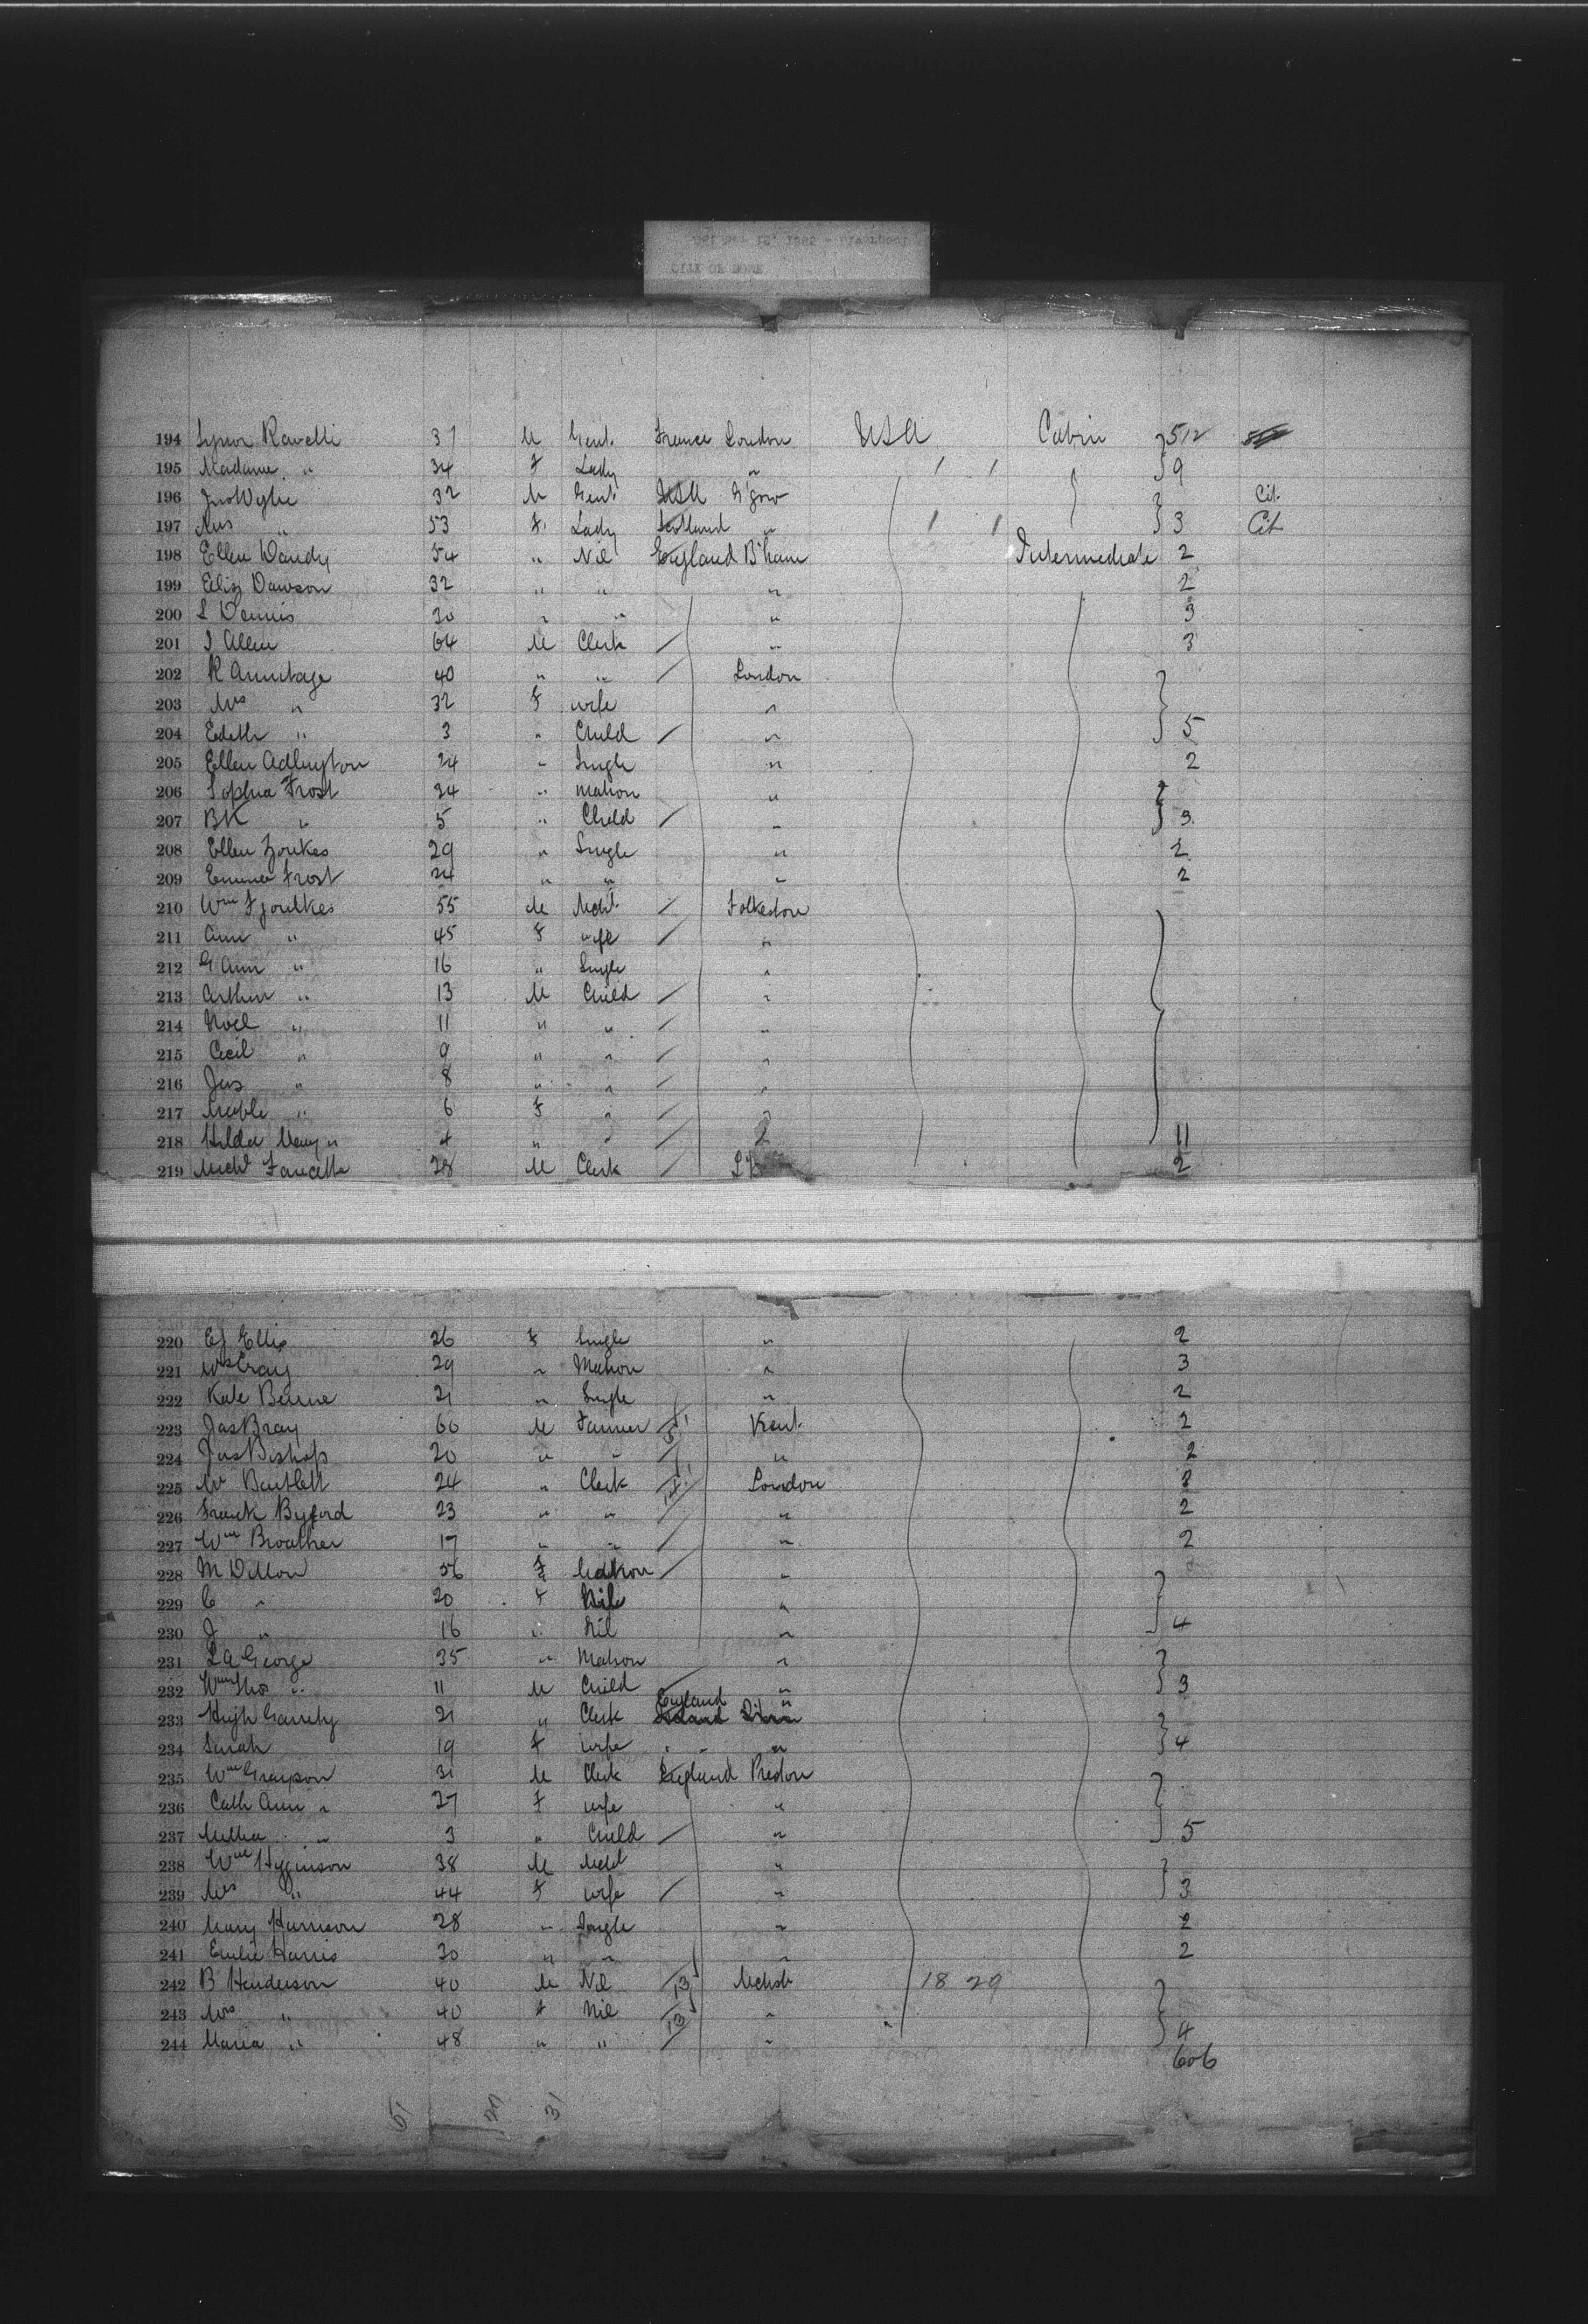 CITY OF ROME
194 Signor Ravelli 37 M Gent. France London USA Cabin 512
195 Madame " 34 F Lady " 9
196 Jno Wylie 32 M Gent. USA G'gow Cit.
197 Mrs " 53 F. Lady Scotland " 3 Cit
198 Ellen Dandy 54 " Nil England B'ham Intermediate 2
199 Eliz Dawson 32 " " " 2
200 L Dennis 30 " " " 3
201 J Allen 64 M Clerk " 3
202 R Armitage 40 " " London
203 Mrs " 32 F wife "
204 Edith " 3 " Child " 5
205 Ellen Adlington 24 " Single " 2
206 Sophia Frost 24 " Matron "
207 BK " 5 " Child " 3
208 Ellen 29 " Single " 2
209 Emma Frost 24 " " " 2
210 Wm 55 M Mcht. Folkston
211 Ann " 45 F wife "
212 G Ann " 16 " Single "
213 Arthur " 13 M Child "
214 Noel " 11 " " "
215 Cecil " 9 " " "
216 Jas " 8 " " "
217 Mable " 6 F " "
218 Hilda Mary " 4 " " 11
219 Michl Fawcett 28 M Clerk 2
220 EJ Ellis 26 F Single " 2
221 Craig 29 " Matron " 3
222 Kate 21 " Single " 2
223 Jas Bray 60 M Farmer Kent. 2
224 Jas Bishop 20 " " " 2
225 W Bartlett 24 " Clerk London 3
226 Frank Byford 23 " " " 2
227 Wm Broather 17 " " " 2
228 M Dillon 56 F Matron "
229 C " 20 F "
230 J " 16 " Nil " 4
231 LA George 35 " Matron "
232 Wm Thos " 11 M Child " 3
233 Hugh Garrety 21 " Clerk England "
234 Sarah 19 F wife " " 4
235 Wm Grayson 31 M Clerk England Preston
236 Cath Ann " 27 F wife "
237 " 3 " Child " 5
238 Wm Higginson 38 M "
239 Mrs " 44 F wife " 3
240 Mary Harrison 28 " Single " 2
241 Emilie Harris 30 " " " 2
242 B Henderson 40 M Nil 13 Mchstr 18 29
243 Mrs " 40 F Nil 13 "
244 Maria " 48 " " " 4
606
31